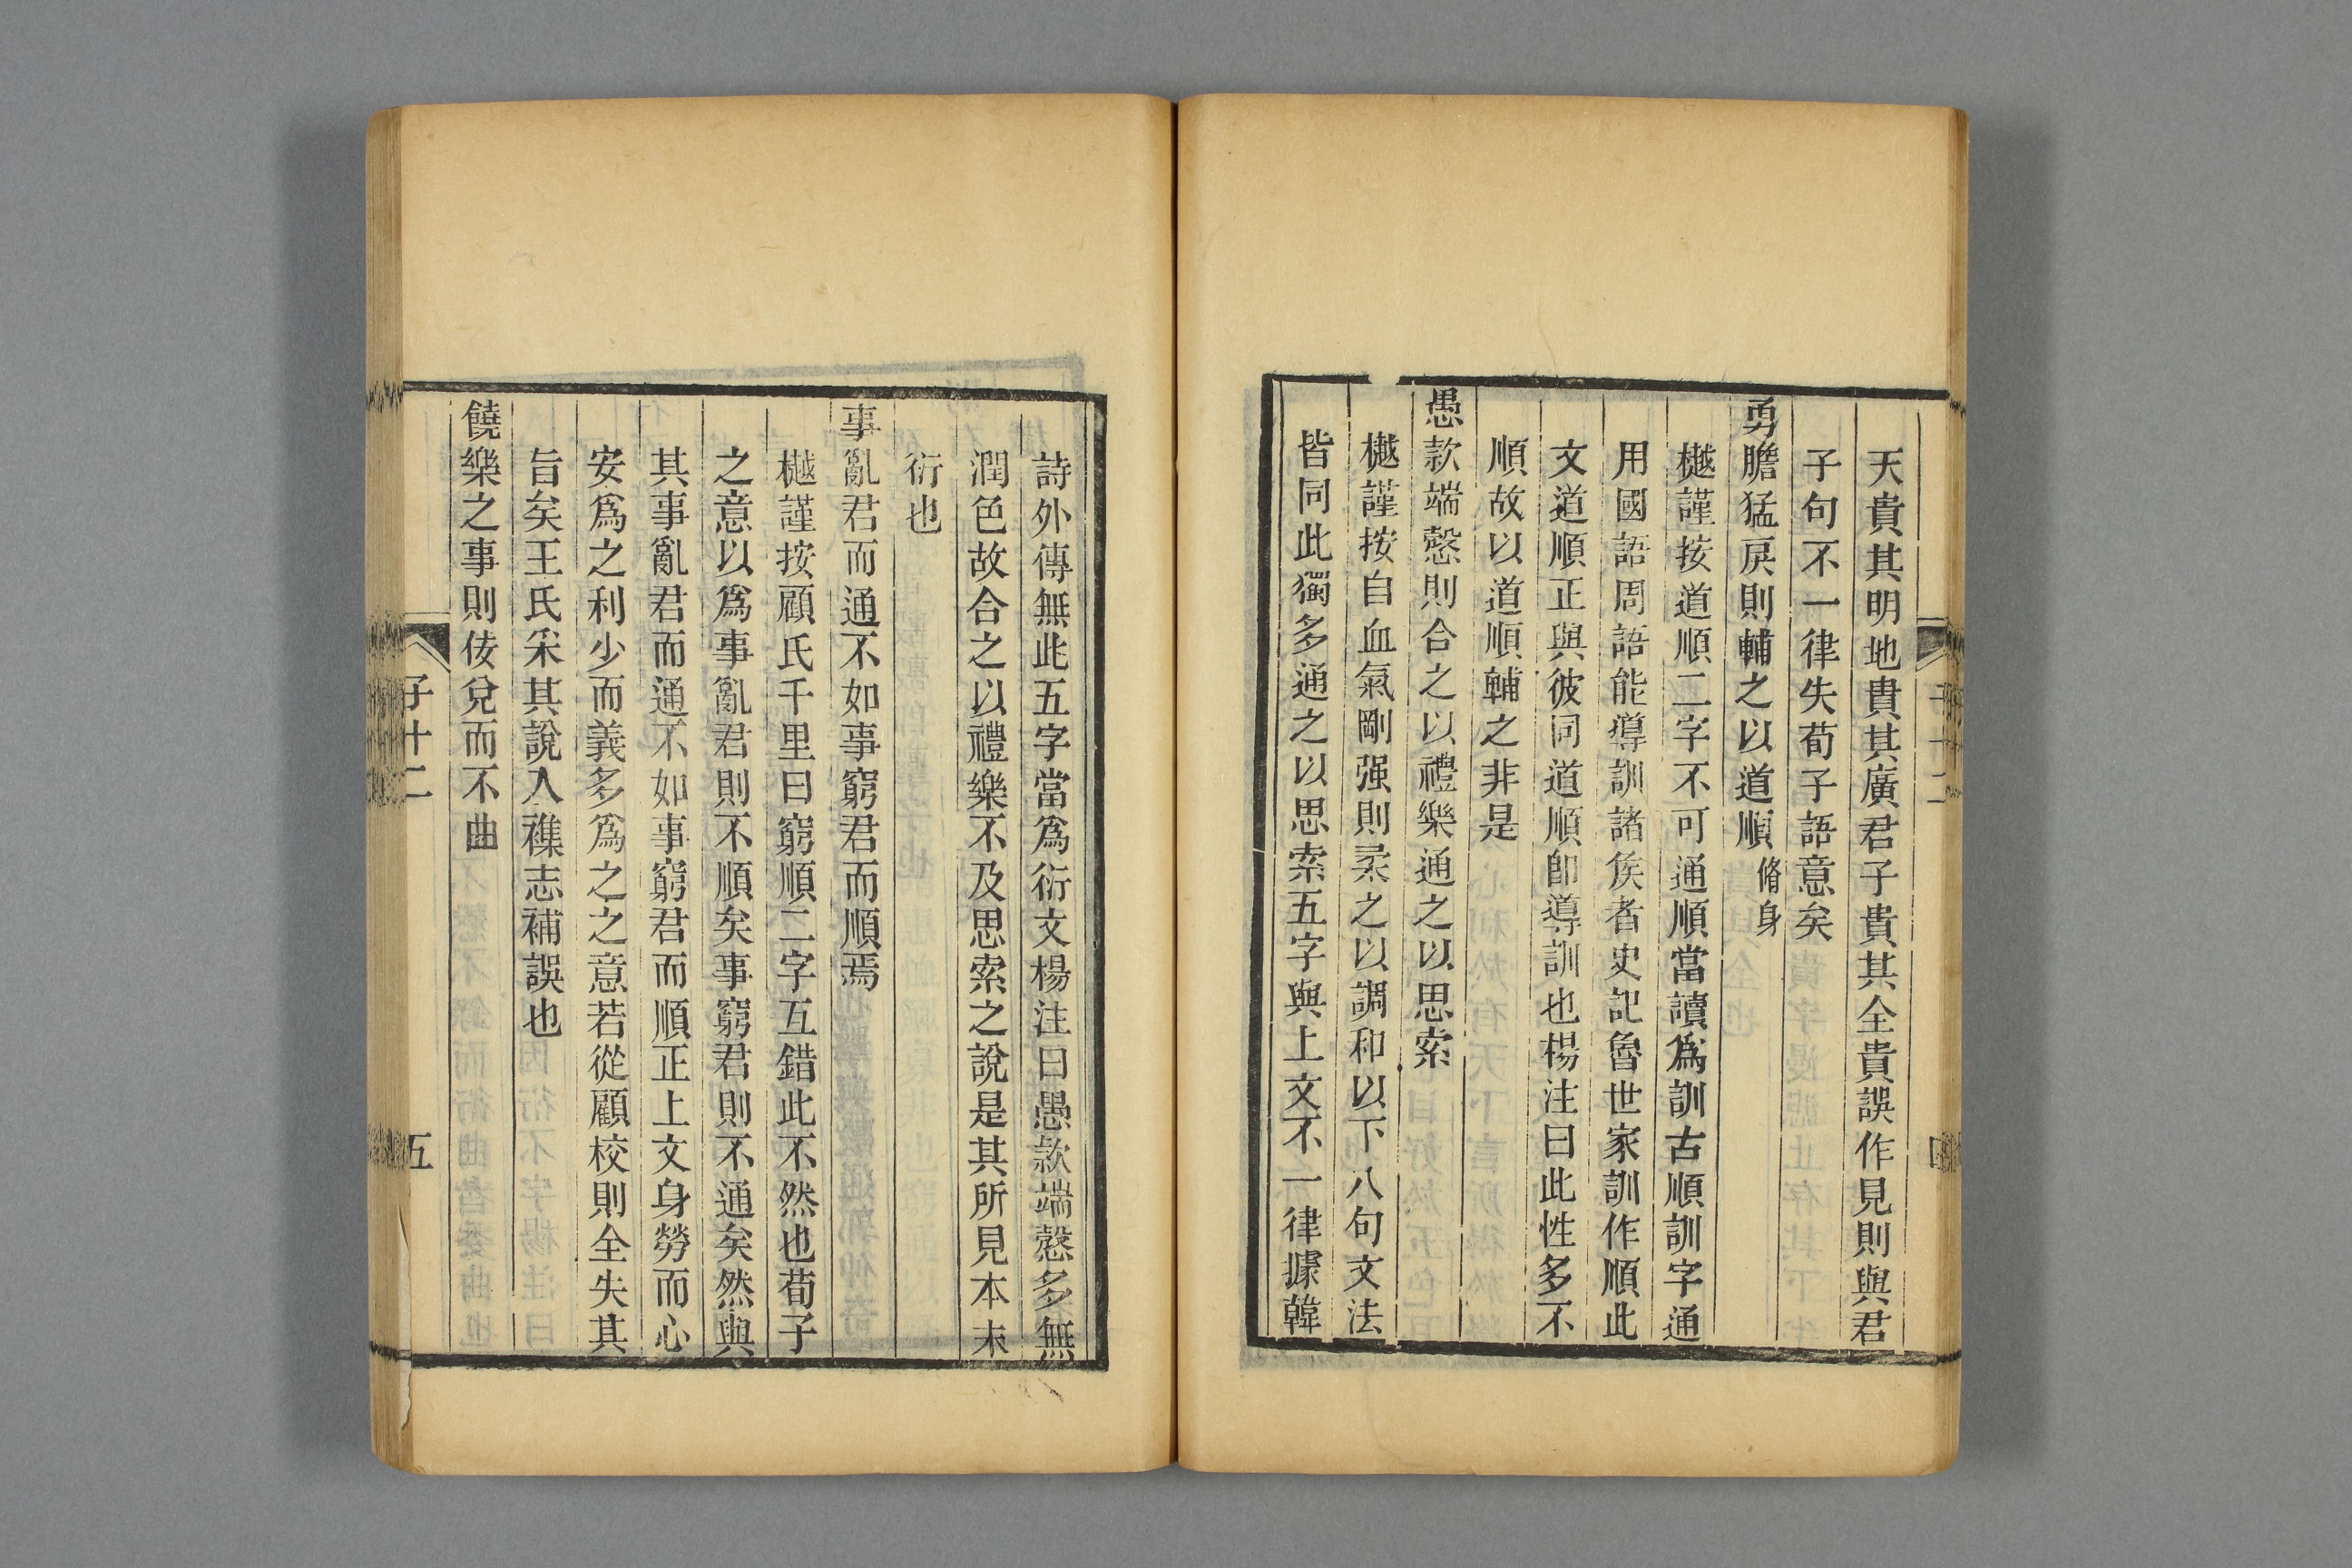 天貴其明地貴其廣君子貴其全貴誤作見則與君
子句不一律失荀子語意矣
勇膽猛戾則輔之以道順 脩身
樾謹按道順二字不可通順當讀爲訓古順訓字通
用國語周語能導訓諸矦者史記魯世家訓作順此
文道順正與彼同道順卽導訓也楊注曰此性多不
順故以道順輔之非是
愚款端愨則合之以禮樂通之以思索
樾謹按自血氣剛强則柔之以調和以下八句文法
皆同此獨多通之以思索五字與上文不一律據韓
詩外傳無此五字當爲衍文楊注曰愚款端愨多無
潤色故合之以禮樂不及思索之說是其所見本未
衍也
事亂君而通不如事窮君而順焉
樾謹按顧氏千里曰窮順二字互錯此不然也荀子
之意以爲事亂君則不順矣事窮君則不通矣然與
其事亂君而通不如事窮君而順正上文身勞而心
安爲之利少而義多爲之之意若從顧校則全失其
旨矣王氏釆其說入襍志補誤也
饒樂之事則佞兌而不曲
子十二
五